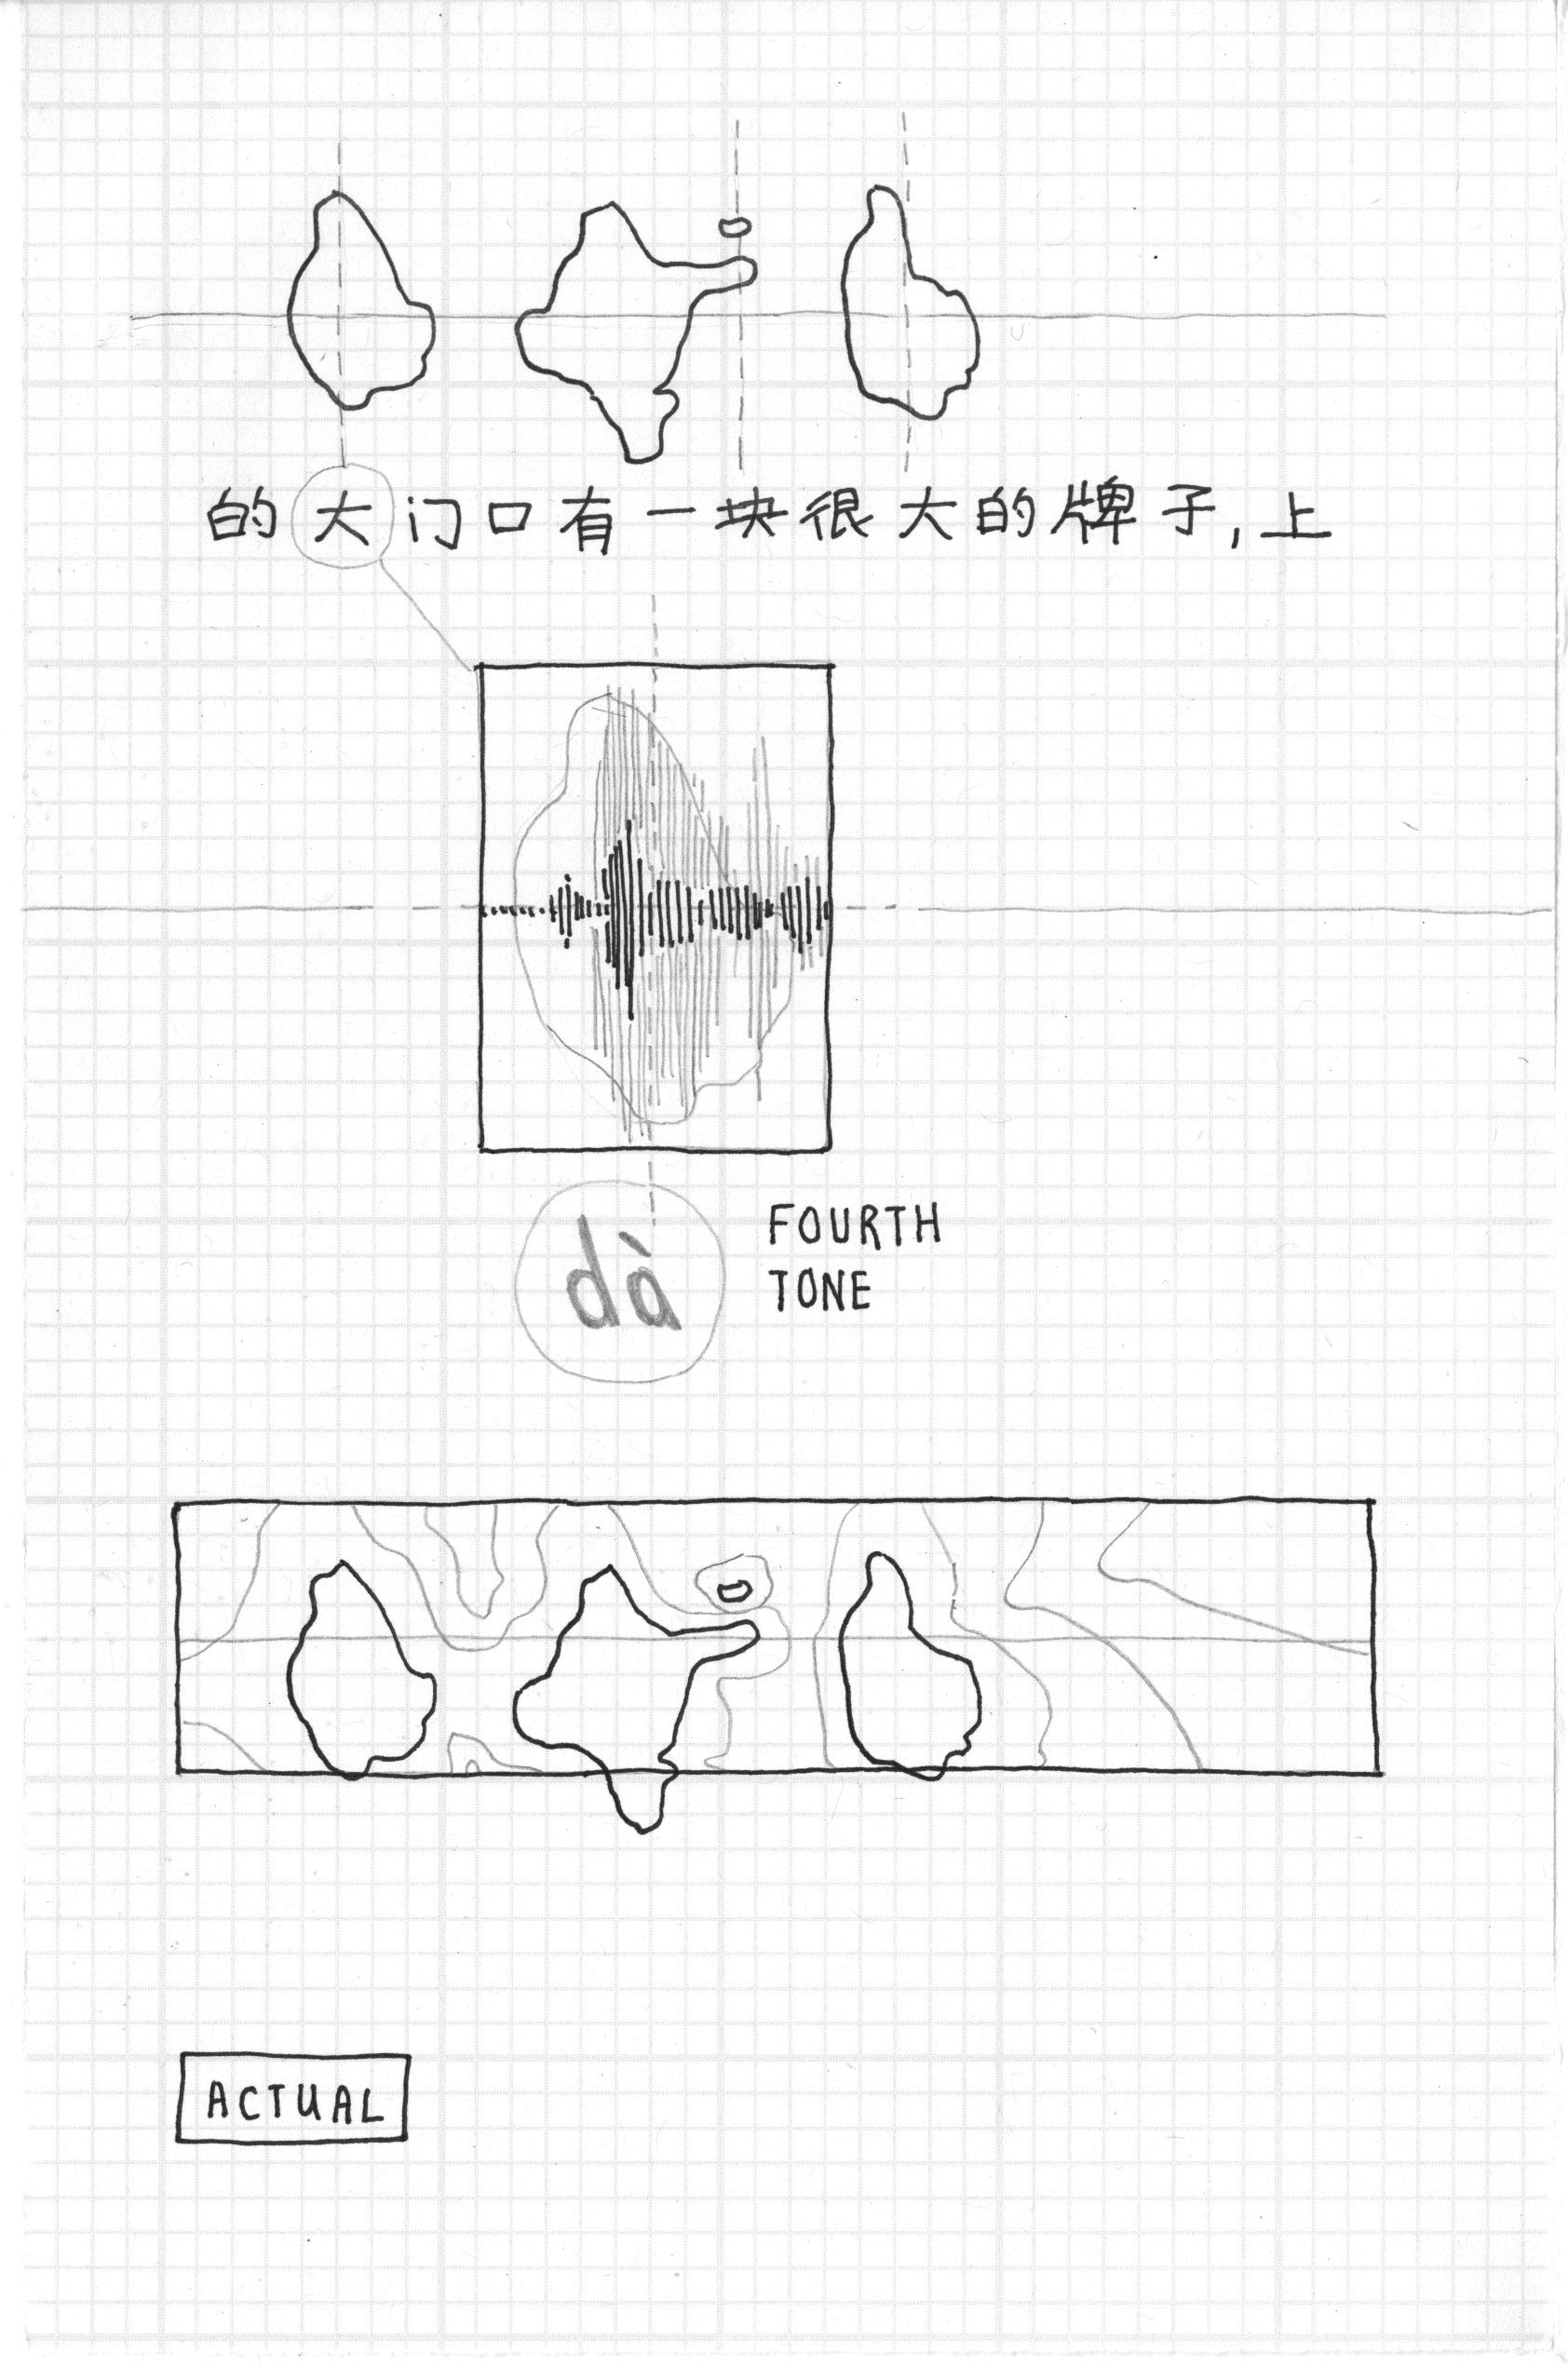 的大门口有一块很大的牌子,上
dà
FOURTH
TONE
ACTUAL